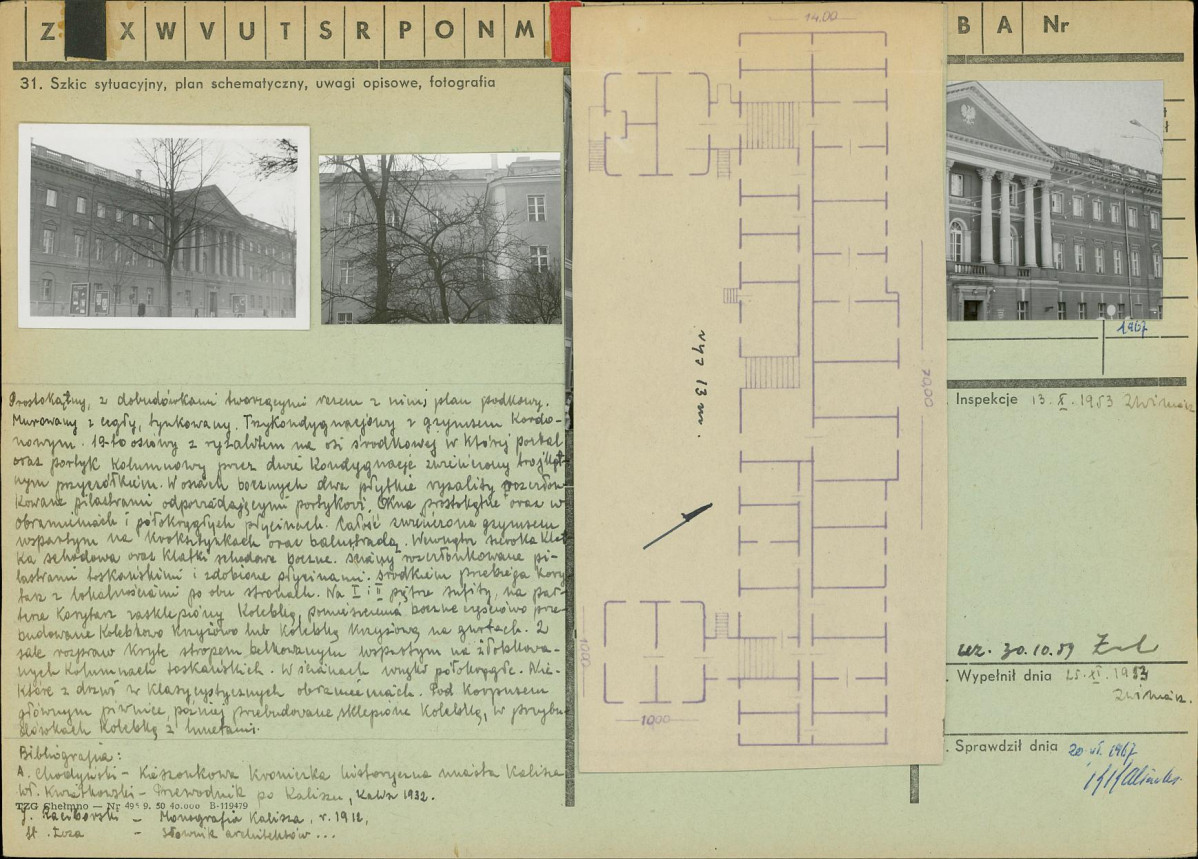 Z X W V U T S R P O N M B A Nr
31. Szkic sytuacyjny, plan schematyczny, uwagi opisowe, fotografia
14.00
Prostokątny, z dobudówkami tworzącymi razem z nim plan podkowy.
Murowany z cegły, tynkowany. Trzykondygnacjowy z gzymsem kordo-
nowym. 19-to osiowy z ryzalitem na osi środkowej w której portal
oraz portyk kolumnowy przez dwie kondygnacje zwieńczony trójkąt-
nym przyczółkiem. W osiach bocznych dwa płytkie ryzality rozczłon-
kowane pilastrami odpowiadającymi portykowi. Okna prostokątne oraz w
obramieniach i półokrągłych płycinach. Całość zwieńczona gzymsem
wspartym na kroksztynkach oraz balustradą. Wewnątrz szeroka klat-
ka schodowa oraz klatki schodowe boczne. Ściany rozczłonkowane pi-
lastrami toskańskimi i zdobione płycinami. Środkiem przebiega kory-
tarz z lokalnościami po obu stronach. Na I i II piętrze sufity, na par-
terze korytarz zasklepiony kolebką, pomieszczenia boczne częściowo prze-
budowane kolebkowo krzyżowo lub kolebką krzyżową na gurtach. 2
sale rozpraw kryte stropem belkowanym wspartym na żłobkowa-
nych kolumnach toskańskich. W ścianach wnęki półokrągłe. Nie-
które z drzwi w klasycystycznych obramieniach. Pod korpusem
głównym piwnice później przebudowane sklepione kolebką, w przybu-
dówkach kolebką z lunetami.
Bibliografia:
A. Chodyński – Kieszonkowa kroniczka historyczna miasta Kalisza
Wł. Kwiatkowski – Przewodnik po Kaliszu, Kalisz 1932.
TZG Chełmno — Nr 495 9. 50 40.000 B-119479
J. Raciborski – Monografia Kalisza, r. 1912,
St. Łoza – Słownik architektów ...
wys 13 m.
70.00
1000
1000
1967
Inspekcje 13. X. 1953
30.10.59
Wypełnił dnia 25. XI. 1953
Sprawdził dnia 20 VI. 1967